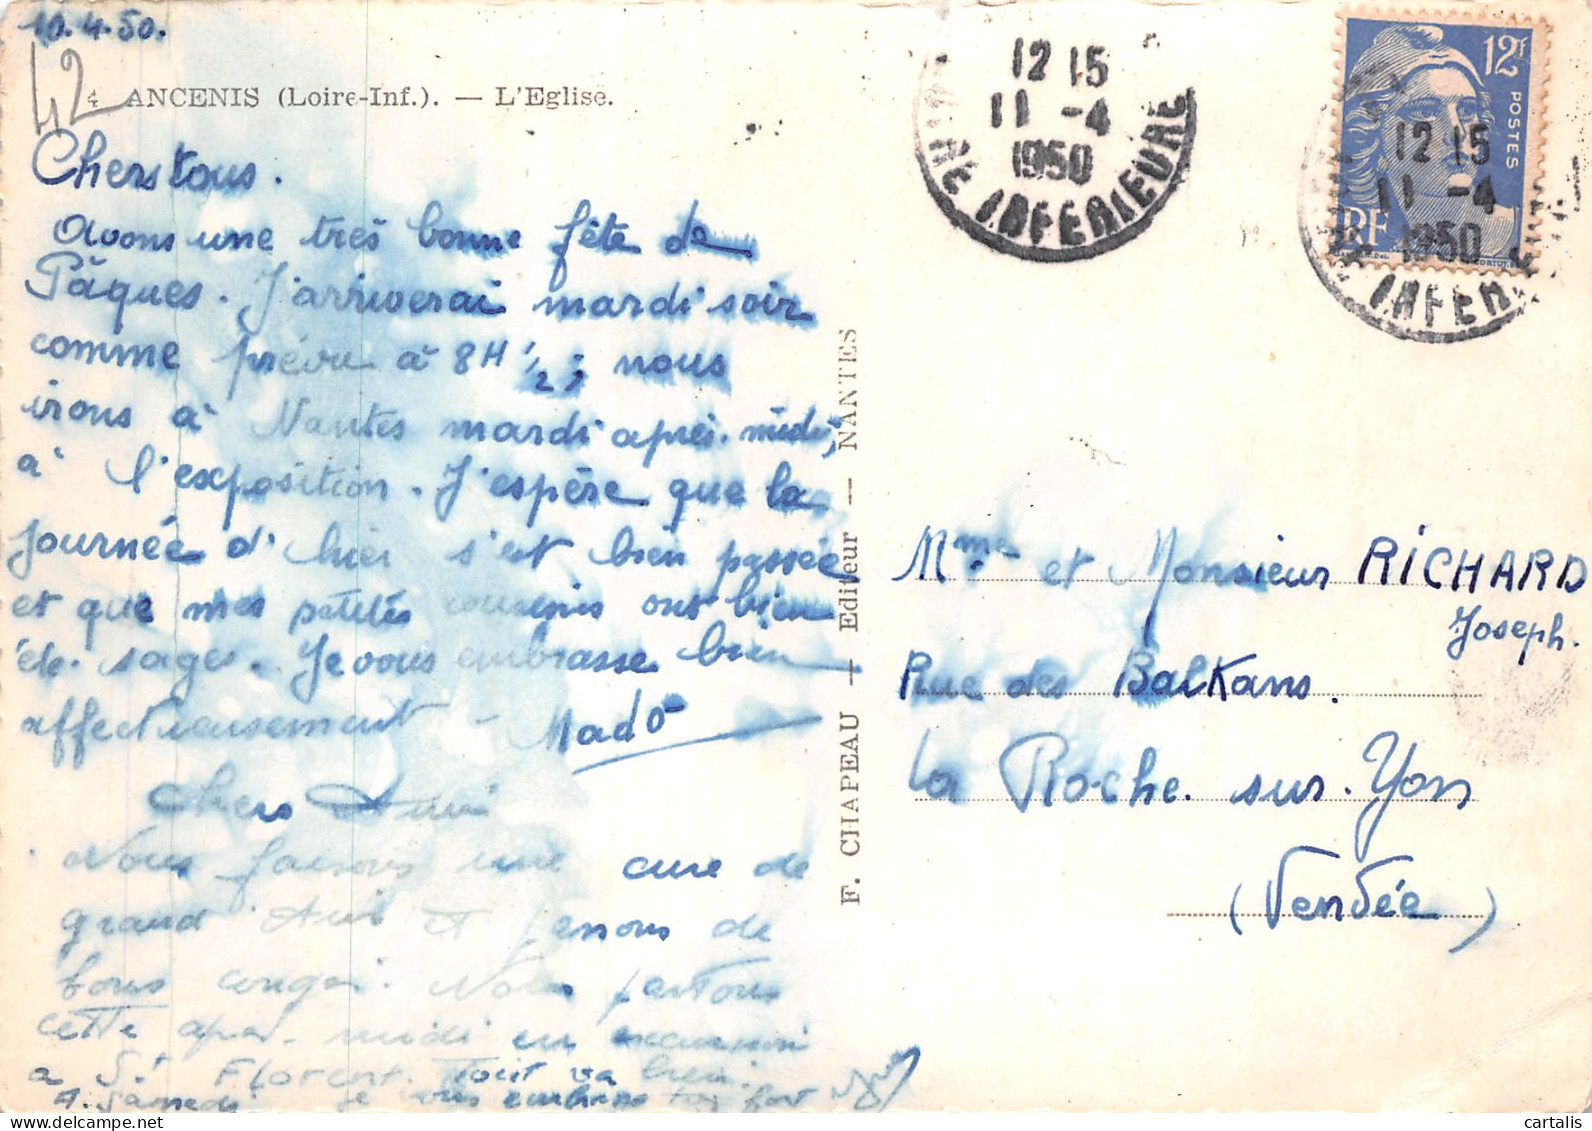 10.4.50.
42
4 ANCENIS (Loire-Inf.). — L'Eglise.
Chers tous.
Avons une très bonne fête de
Pâques. J'arriverai mardi soir
comme prévu à 8H 1/2; nous
irons à Nantes mardi après-midi,
à l'exposition. J'espère que la
journée d'hier s'est bien passée
et que mes petites cousins ont bien
été sages. Je vous embrasse bien
affectueusement - Mado
Chers Ami
Nous faisons une cure de
grand air et jenons de
bons congés. Nous partons
cette après-midi en excursion
a St Florent. Tout va bien.
A. Samedi je vous embrasse fort
F. CHAPEAU — Editeur — NANTES
12 15
11 -4
1950
RE INFERIEURE
12F
POSTES
RF
12 15
11 -4
1950
INFER
Mme et Monsieur RICHARD
Joseph.
Rue des Balkans.
La Roche. sur. Yon
(Vendée)
cartalis